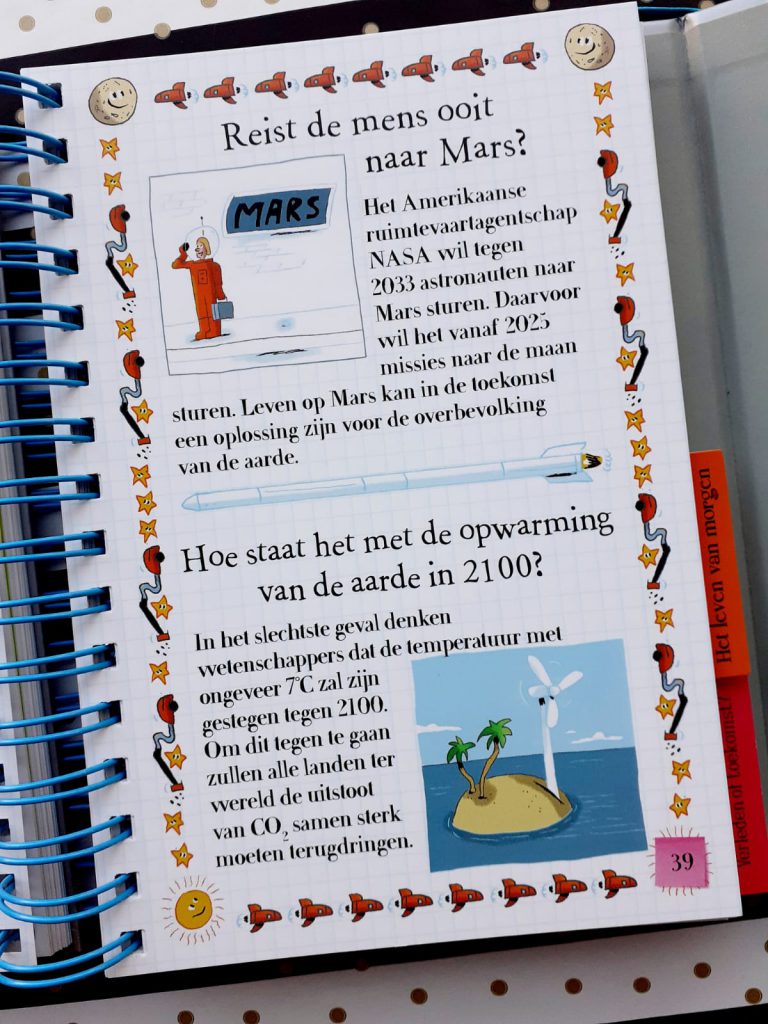 Reist de mens ooit
naar Mars?
MARS
Het Amerikaanse
ruimtevaartagentschap
NASA wil tegen
2033 astronauten naar
Mars sturen. Daarvoor
wil het vanaf 2025
missies naar de maan
sturen. Leven op Mars kan in de toekomst
een oplossing zijn voor de overbevolking
van de aarde.
Hoe staat het met de opwarming
van de aarde in 2100?
In het slechtste geval denken
wetenschappers dat de temperatuur met
ongeveer 7°C zal zijn
gestegen tegen 2100.
Om dit tegen te gaan
zullen alle landen ter
wereld de uitstoot
van CO₂ samen sterk
moeten terugdringen.
39
Het leven van morgen
Verleden of toekomst?